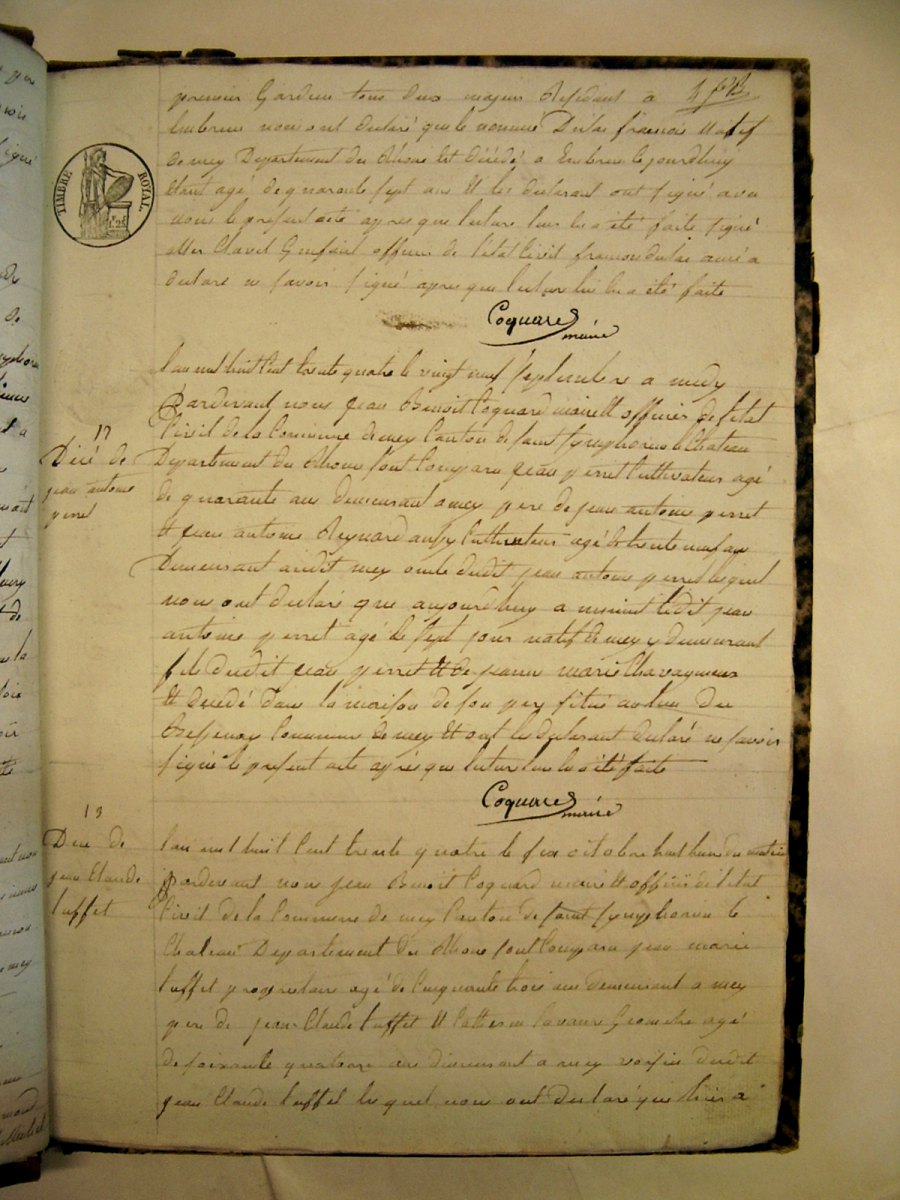 premier Gardien tous deux majeurs Résidant à
Embrun nous ont déclaré que le nommé Duclas françois natif
de mey Departement du Rhone Est décédé a Embrun le jourdhuy
Etant agé de quarante sept ans et les declarant ont signé avec
nous le présent acte apres que lecture leur en a été faite signé
officier de l'état Civil
declaré ne savoir signé apres que lecture lui en a été faite
Coquard
maire
TIMBRE ROYAL
1F.25C
l'an mil huit Cent trente quatre le vingt neuf septembre a midy
Pardevant nous jean Benoit Coquard maire et officier de l'etat
Civil de la Commune de mey Canton de saint symphorien le Chateau
Departement du Rhone sont Comparu jean perret Cultivateur agé
de quarante ans demeurant a mey pere de jean antoine perret
et jean antoine Reynard aussy Cultivateur agé de trente neuf ans
Demeurant audit mey oncle dudit jean antoine perret lesquel
nous ont declaré que aujourdhuy a minuit ledit jean
antoine perret agé de sept jours natif de mey y demeurant
fils dudit jean perret et de jeanne marie Chavagneux
et decedé dans la maison de son pere situé au lieu du
Bessenay Commune de mey et ont les declarant declaré ne savoir
signé le present acte apres que lecture leur en a été faite
Coquard
maire
17
Décé de
jean antoine
perret
l'an mil huit Cent trente quatre le six octobre huit heure du matin
pardevant nous jean Benoit Coquard maire et officier de l'etat
Civil de la Commune de mey Canton de saint symphorien le
Chateau Departement du Rhone sont Comparu jean marie
tuffet proprietaire agé de Cinquante trois ans demeurant a mey
pere de jean Claude tuffet et Geometre agé
de soixante quatorze ans demeurant a mey voisin dudit
jean Claude tuffet lesquel nous ont declaré que hier à
Décé de
jean Claude
tuffet